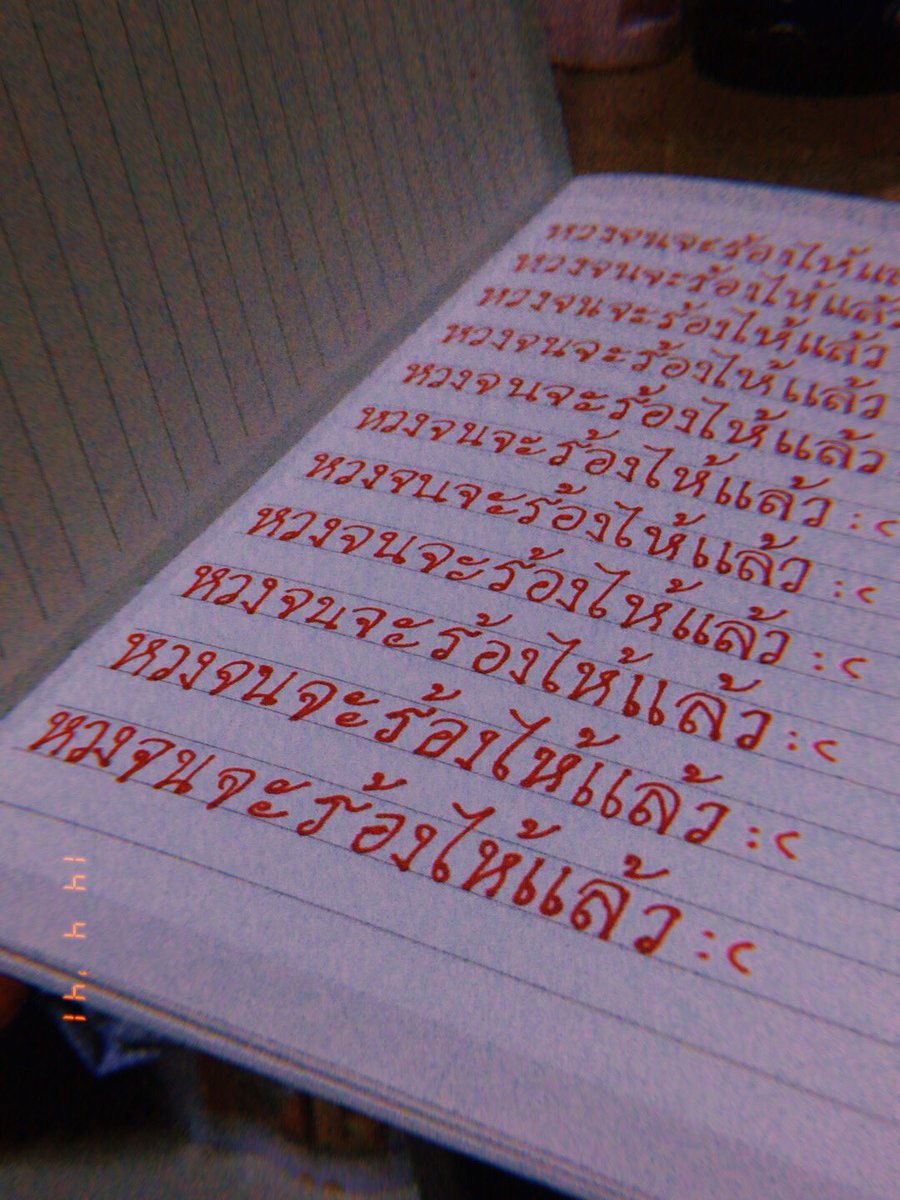 หวงจนจะร้องไห้แ
หวงจนจะร้องไห้แล้ว
หวงจนจะร้องไห้แล้ว
หวงจนจะร้องไห้แล้ว
หวงจนจะร้องไห้แล้ว
หวงจนจะร้องไห้แล้ว :c
หวงจนจะร้องไห้แล้ว :c
หวงจนจะร้องไห้แล้ว :c
หวงจนจะร้องไห้แล้ว :c
หวงจนจะร้องไห้แล้ว :c
หวงจนจะร้องไห้แล้ว :c